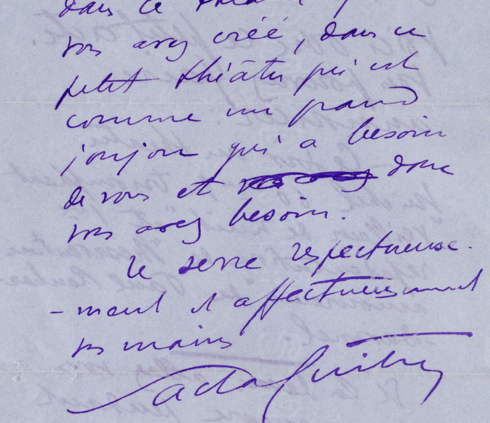 dans ce
vous avez créé, dans ce
petit théâtre qui est
comme un grand
joujou qui a besoin
de vous et donc
vous avez besoin.
Je serre respectueuse-
-ment et affectueusement
vos mains
Sacha Guitry